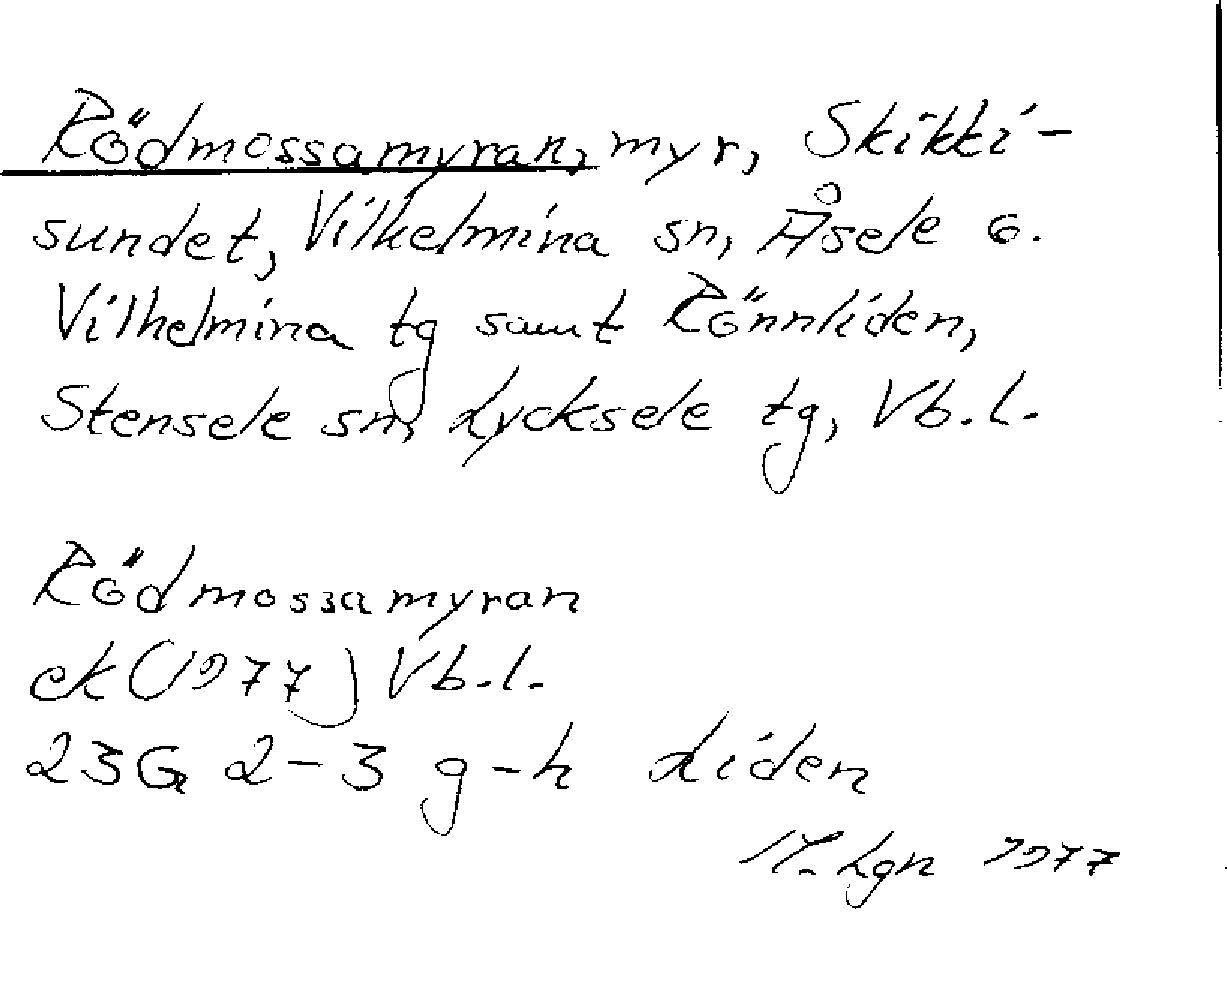 Rödmossamyran, myr, Skikki-
sundet, Vilhelmina sn, Åsele o.
Vilhelmina tg samt Rönnliden,
Stensele sn, Lycksele tg, Vb.l.
Rödmossamyran
ek (1977) Vb.l.
23G 2-3 g-h Liden
Lgn 1977